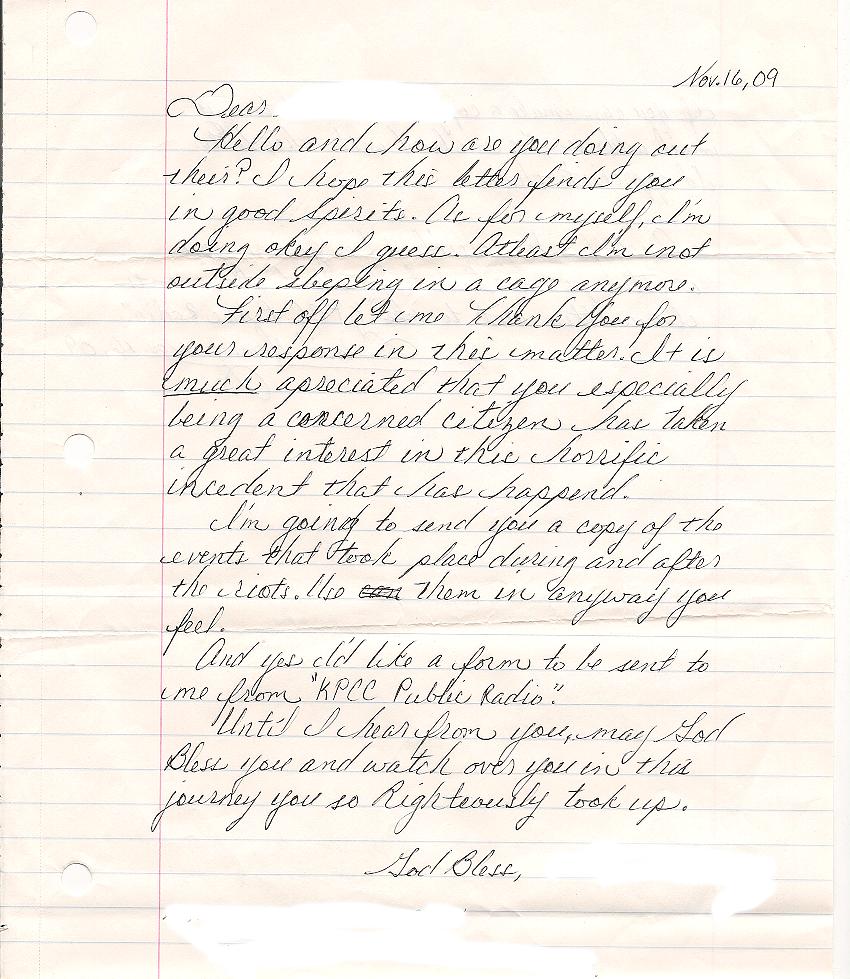 Nov. 16, 09
Dear
Hello and how are you doing out
their? I hope this letter finds you
in good spirits. As for myself, I'm
doing okey I guess. Atleast I'm not
outside sleeping in a cage anymore.
First off let me Thank You for
your response in this matter. It is
much apreciated that you especially
being a concerned citizen has taken
a great interest in this horrific
incedent that has happend.
I'm going to send you a copy of the
events that took place during and after
the riots. Use can them in anyway you
feel.
And yes I'd like a form to be sent to
me from "KPCC Public Radio".
Until I hear from you, may God
Bless you and watch over you in this
journey you so Righteously took up.
God Bless,